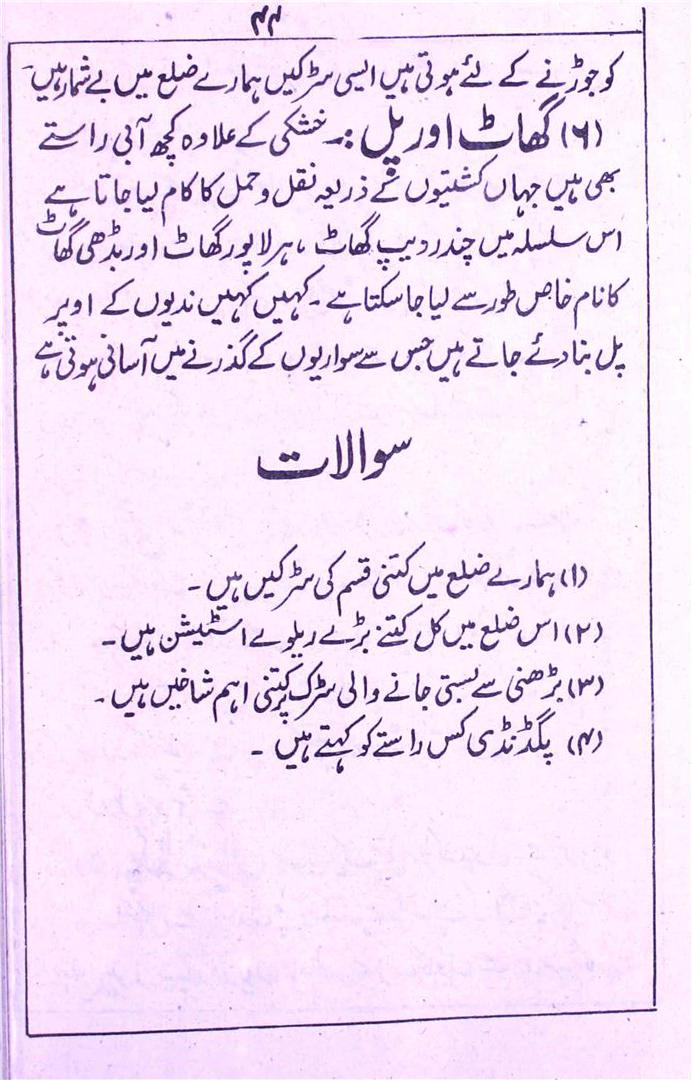 ۴۴
کو جوڑنے کے لئے ہوتی ہیں ایسی سڑکیں ہمارے ضلع میں بے شمار ہیں۔
(۶) گھاٹ اور پل :۔ خشکی کے علاوہ کچھ آبی راستے
بھی ہیں جہاں کشتیوں کے ذریعہ نقل و حمل کا کام لیا جاتا ہے
اس سلسلہ میں چندر دیپ گھاٹ، ہرلاپور گھاٹ اور بڈھی گھاٹ
کا نام خاص طور سے لیا جا سکتا ہے ۔ کہیں کہیں ندیوں کے اوپر
پل بنا دئے جاتے ہیں جس سے سواریوں کے گذرنے میں آسانی ہوتی ہے
سوالات
(۱) ہمارے ضلع میں کتنی قسم کی سڑکیں ہیں ۔
(۲) اس ضلع میں کل کتنے بڑے ریلوے اسٹیشن ہیں ۔
(۳) بڑھنی سے بستی جانے والی سڑک پر کتنی اہم شاخیں ہیں ۔
(۴) پگڈنڈی کس راستے کو کہتے ہیں ۔